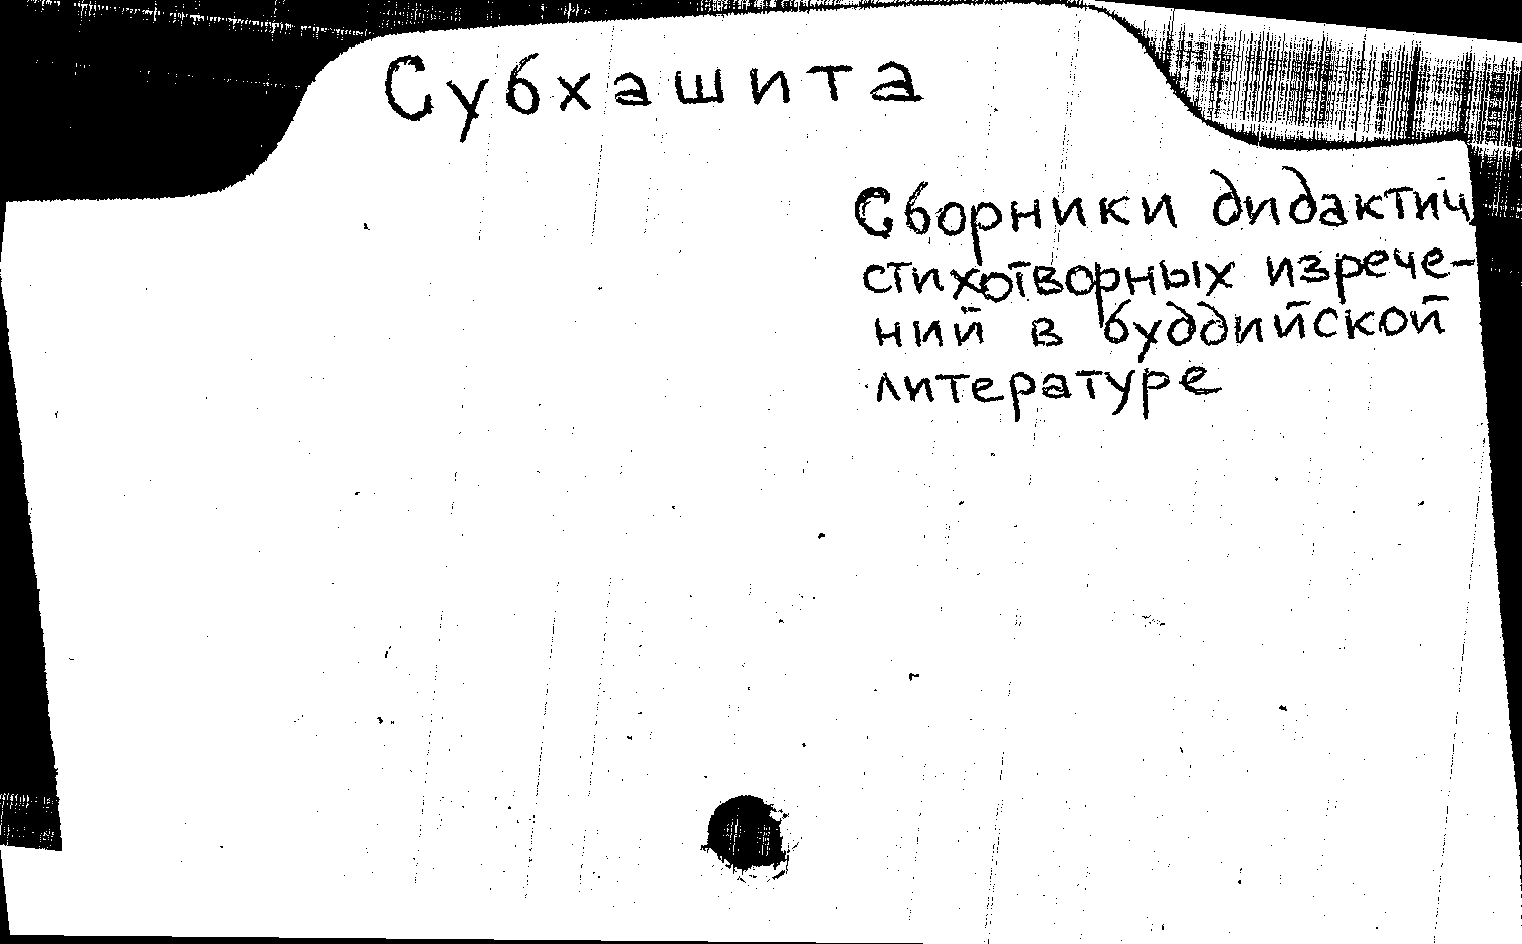 Субхашита
Сборники дидактич.
стихотворных изрече-
ний в буддийской
литературе